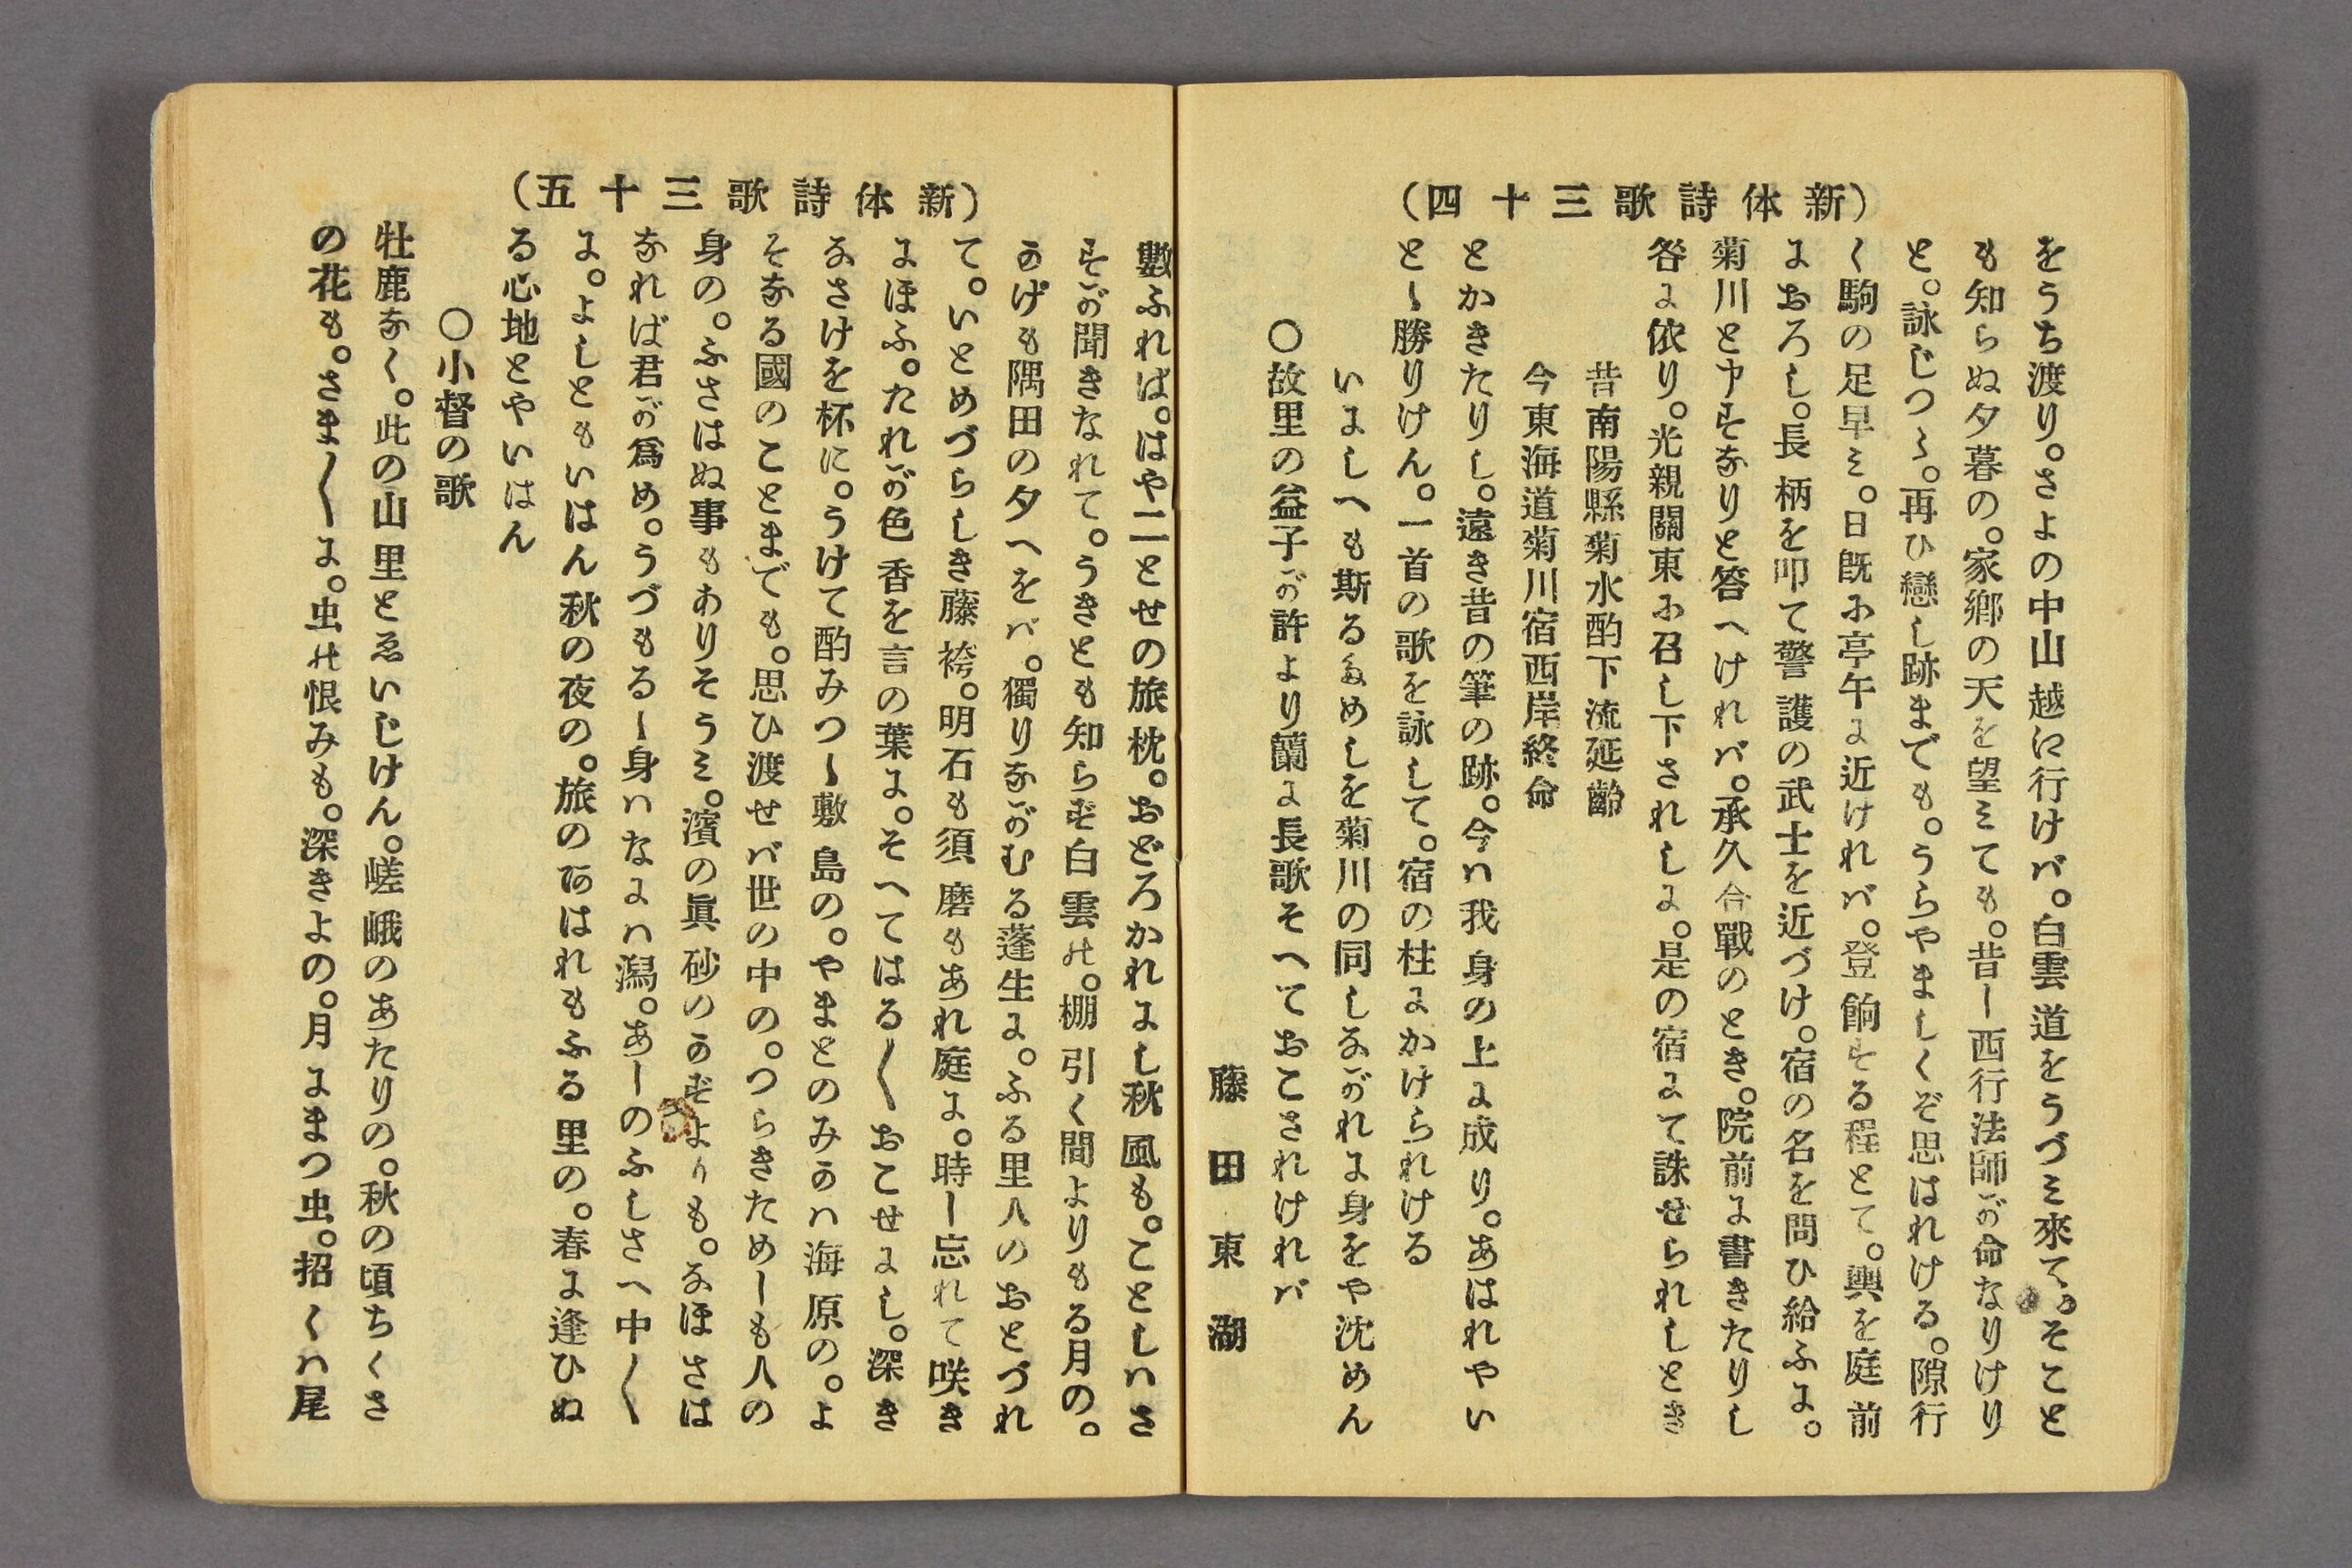 (新体詩歌三十四)
をうち渡り。さよの中山越に行けバ。白雲道をうづミ來て。そこと
も知らぬ夕暮の。家鄉の天を望ミても。昔ー西行法師が命なりけり
と。詠じつゝ。再ひ戀し跡までも。うらやましくぞ思はれける。隙行
く駒の足早ミ。日既に亭午に近けれバ。登餉する程とて。輿を庭前
におろし。長柄を叩て警護の武士を近づけ。宿の名を問ひ給ふに。
菊川と申すなりと答へけれバ。承久合戰のとき。院前に書きたりし
咎に依り。光親關東に召し下されしに。是の宿にて誅せられしとき
昔南陽縣菊水酌下流延齡
今東海道菊川宿西岸終命
とかきたりし。遠き昔の筆の跡。今ハ我身の上に成り。あはれやい
とゝ勝りけん。一首の歌を詠して。宿の柱にかけられける
いにしへも斯るためしを菊川の同しながれに身をや沈めん
〇故里の益子が許より蘭に長歌そへておこされけれバ
藤田東湖
(新体詩歌三十五)
數ふれば。はや二とせの旅枕。おどろかれにし秋風も。ことしハさ
すが聞きなれて。うきとも知らず白雲の。棚引く間よりもる月の。
かげも隅田の夕へをバ。獨りながむる蓬生に。ふる里人のおとづれ
て。いとめづらしき藤袴。明石も須磨もあれ庭に。時ー忘れて咲き
にほふ。たれが色香を言の葉に。そへてはる〱おこせにし。深き
なさけを杯に。うけて酌みつゝ敷島の。やまとのみかハ海原の。よ
そなる國のことまでも。思ひ渡せバ世の中の。つらきためーも人の
身の。ふさはぬ事もありそうミ。濱の眞砂のかずよりも。なほさは
なれば君が爲め。うづもるゝ身ハなにハ潟。あーのふしさへ中〱
に。よしともいはん秋の夜の。旅のあはれもふる里の。春に逢ひぬ
る心地とやいはん
〇小督の歌
牡鹿なく。此の山里とゑいじけん。嵯峨のあたりの。秋の頃ちくさ
の花も。さま〱に。虫の恨みも。深きよの。月にまつ虫。招くハ尾